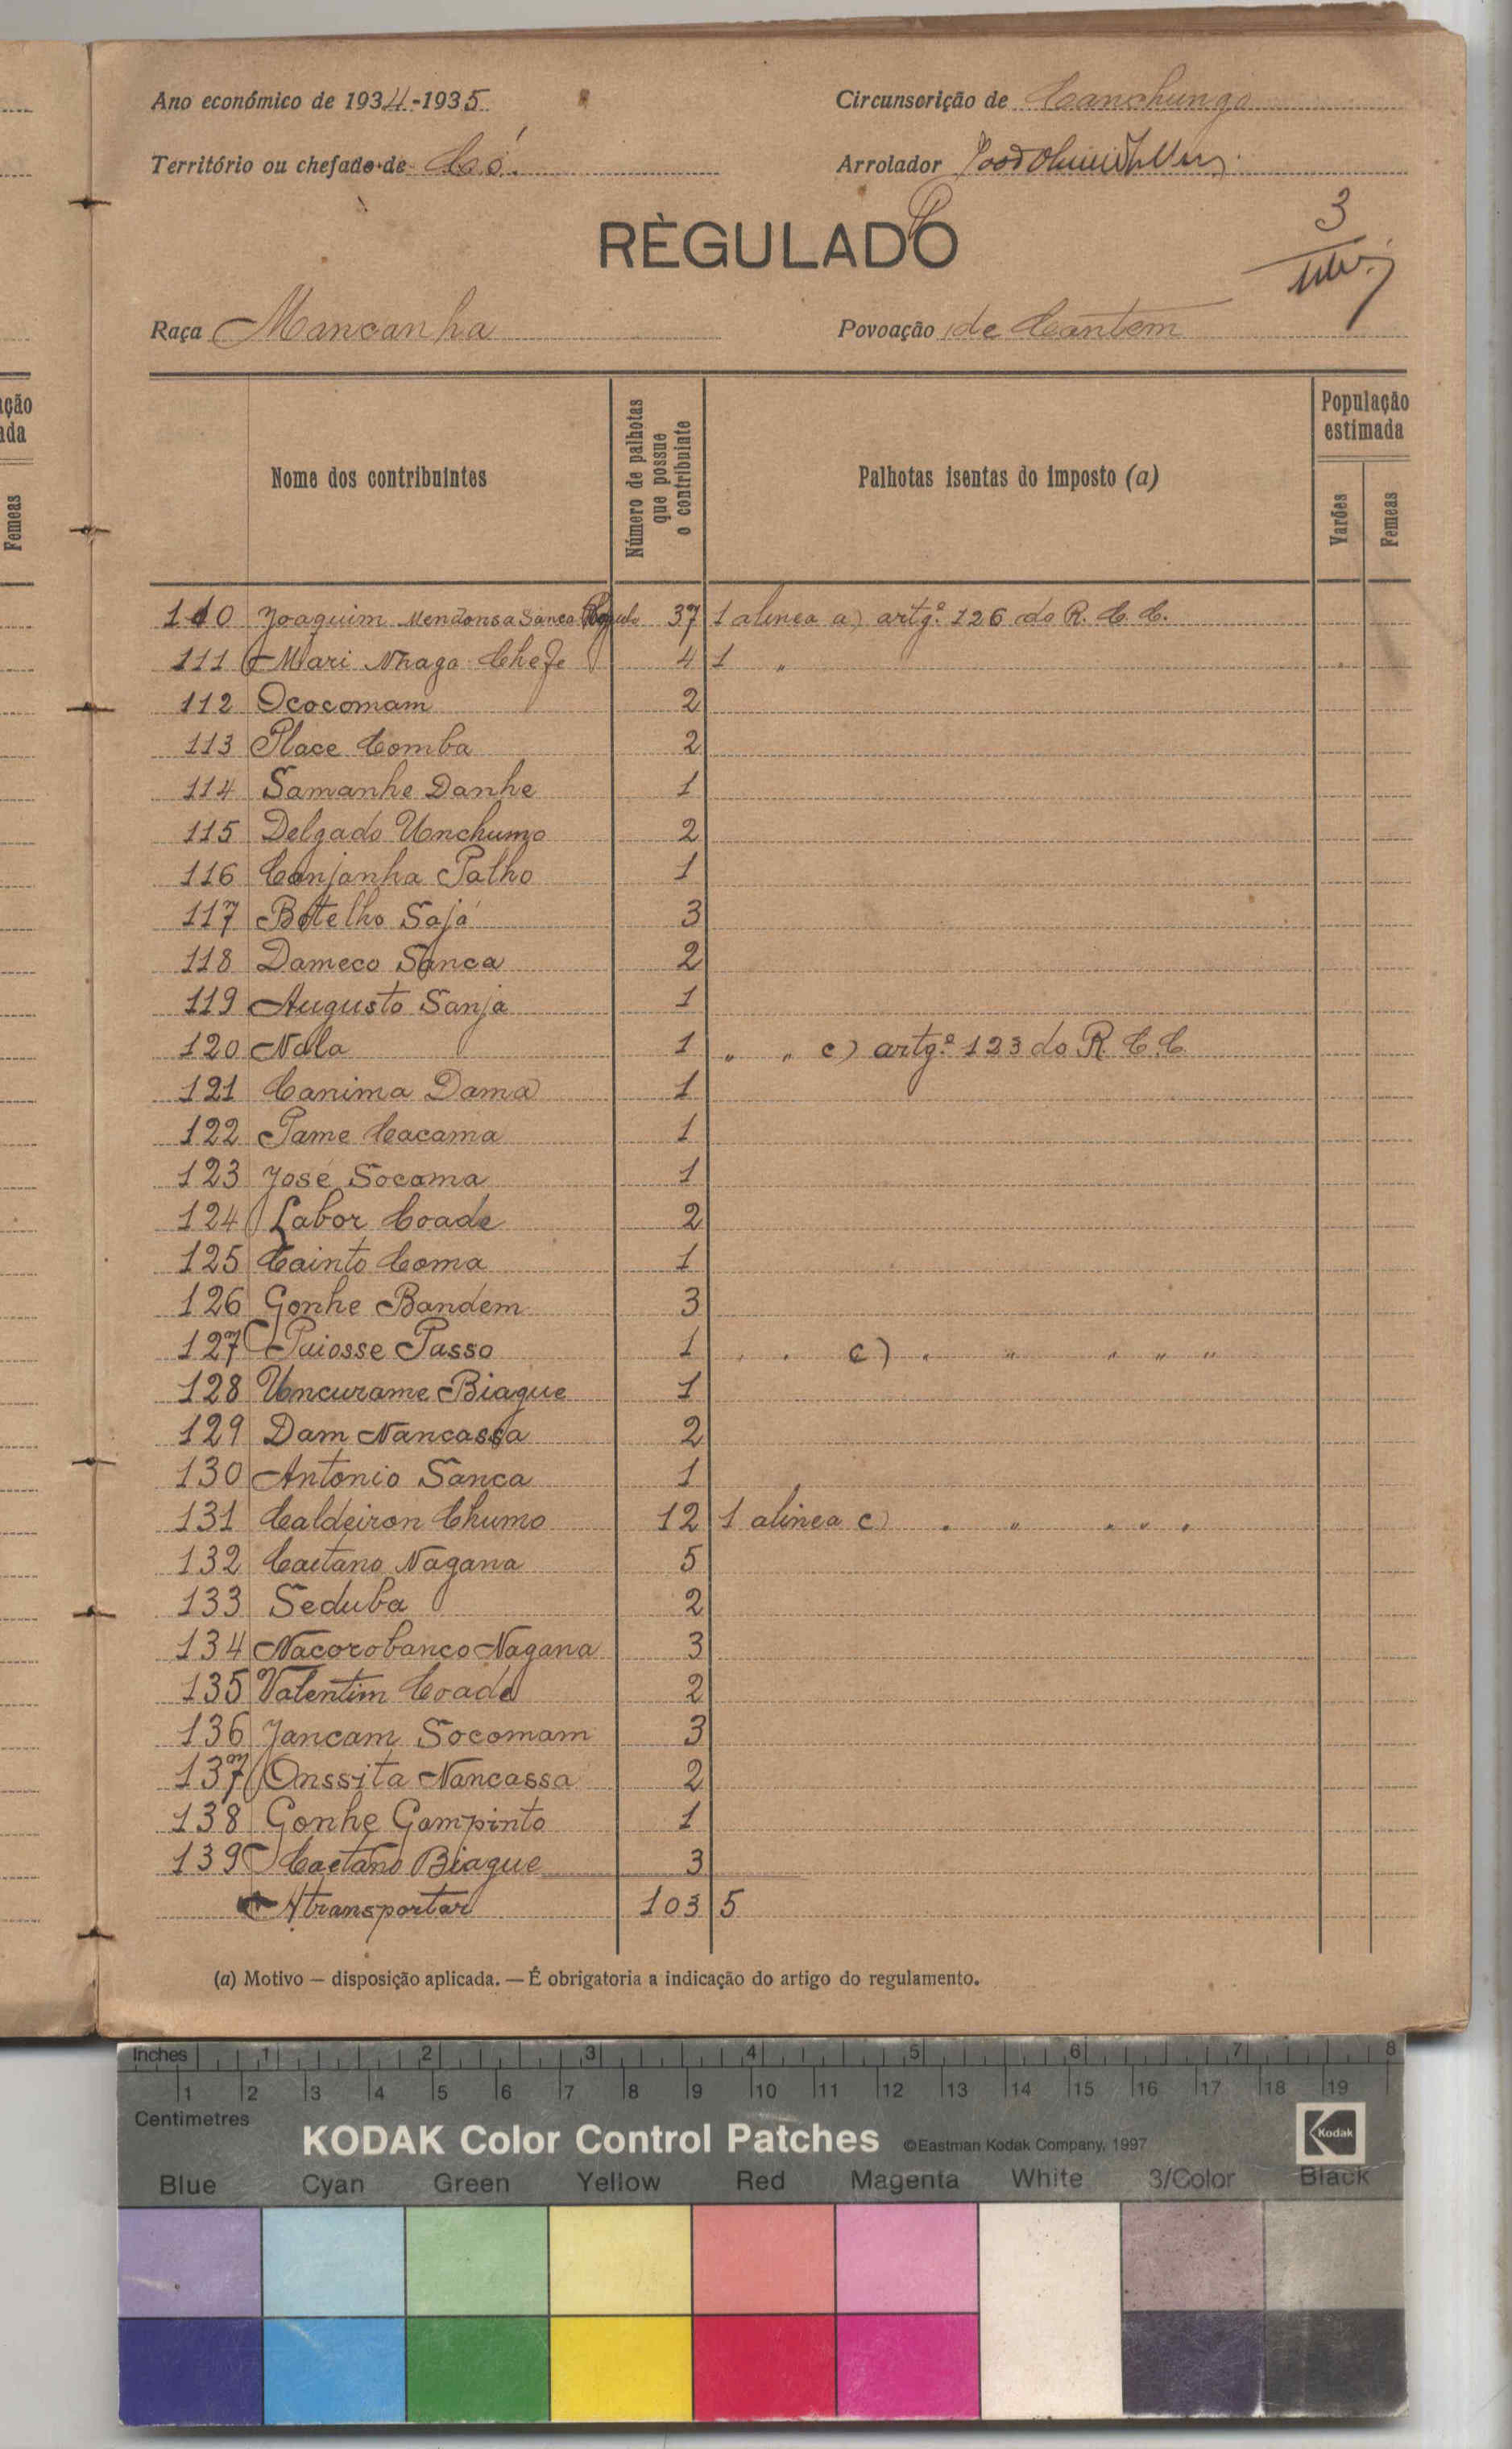 Ano económico de 1934-1935
Circunscrição de Canchungo
Território ou chefado de Có.
Arrolador
RÈGULADO
3
Raça Mancanha
Povoação de Cantem
ação
ada
Femeas
Nome dos contribuintes
Número de palhotas que possue o contribuinte
Palhotas isentas do imposto (a)
População estimada
Varões
Femeas
110 Joaquim Mendonsa Sanca Regulo 37 1 alinea a) artg.º 126 do R. C. C.
111 Mari Nhaga Chefe 4 1 "
112 Ococomam 2
113 Place Comba 2
114 Samanhe Danhe 1
115 Delgado Unchumo 2
116 Canjanha Palho 1
117 Botelho Sajá 3
118 Dameco Sanca 2
119 Augusto Sanja 1
120 Nala 1 " " c) artg.º 123 do R C. C
121 Canima Dama 1
122 Pame Cacama 1
123 José Socoma 1
124 Labor Coade 2
125 Cainto Coma 1
126 Gonhe Bandem 3
127 Puiosse Passo 1 " " c) " " " " "
128 Uncurame Biague 1
129 Dam Nancassa 2
130 Antonio Sanca 1
131 Caldeiron Chumo 12 1 alinea c) " " " " "
132 Caetano Nagana 5
133 Seduba 2
134 Nacorobanco Nagana 3
135 Valentim Coade 2
136 Jancam Socomam 3
137 Onssita Nancassa 2
138 Gonhe Gompinto 1
139 Caetano Biague 3
A transportar 103 5
(a) Motivo — disposição aplicada. — É obrigatoria a indicação do artigo do regulamento.
Inches 1 2 3 4 5 6 7 8
1 2 3 4 5 6 7 8 9 10 11 12 13 14 15 16 17 18 19
Centimetres
KODAK Color Control Patches ©Eastman Kodak Company, 1997 Kodak
Blue Cyan Green Yellow Red Magenta White 3/Color Black